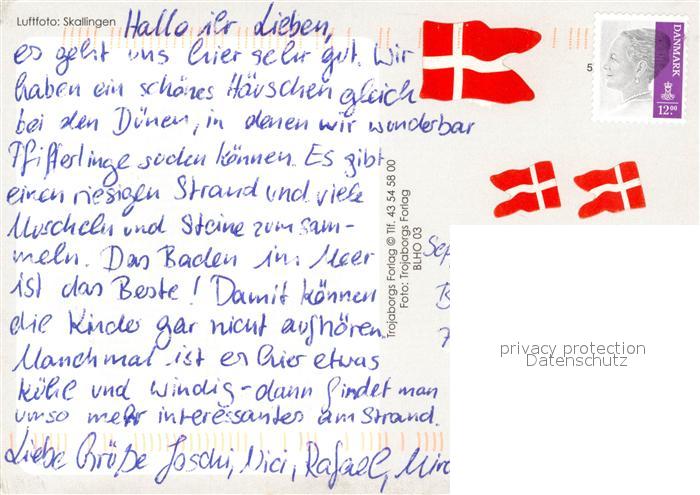 Luftfoto: Skallingen
Hallo ihr Lieben,
es geht uns hier sehr gut. Wir
haben ein schönes Häuschen gleich
bei den Dünen, in denen wir wunderbar
Pfifferlinge suchen können. Es gibt
einen riesigen Strand und viele
Muscheln und Steine zum sam-
meln. Das Baden im Meer
ist das Beste! Damit können
die Kinder gar nicht aufhören.
Manchmal ist es hier etwas
kühl und windig - dann findet man
umso mehr interessantes am Strand.
Liebe Grüße Joschi, Nici, Rafael,
Trojaborgs Forlag © Tlf. 43 54 58 00
Foto: Trojaborgs Forlag
BLHO 03
DANMARK
12.00
5
privacy protection
Datenschutz